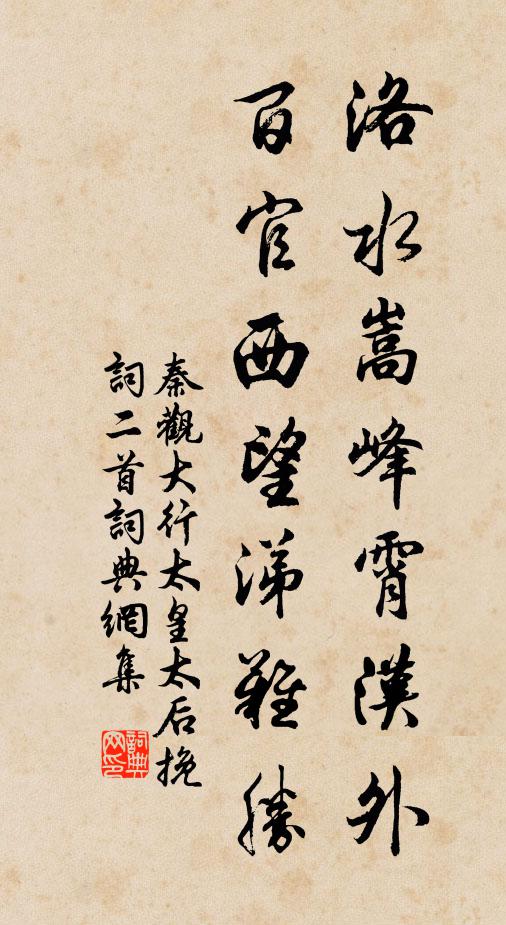 洛水嵩峰霄漢外
百官西望涕難勝
秦觀大行太皇太后挽
詞二首詞典網集
詞典
网印